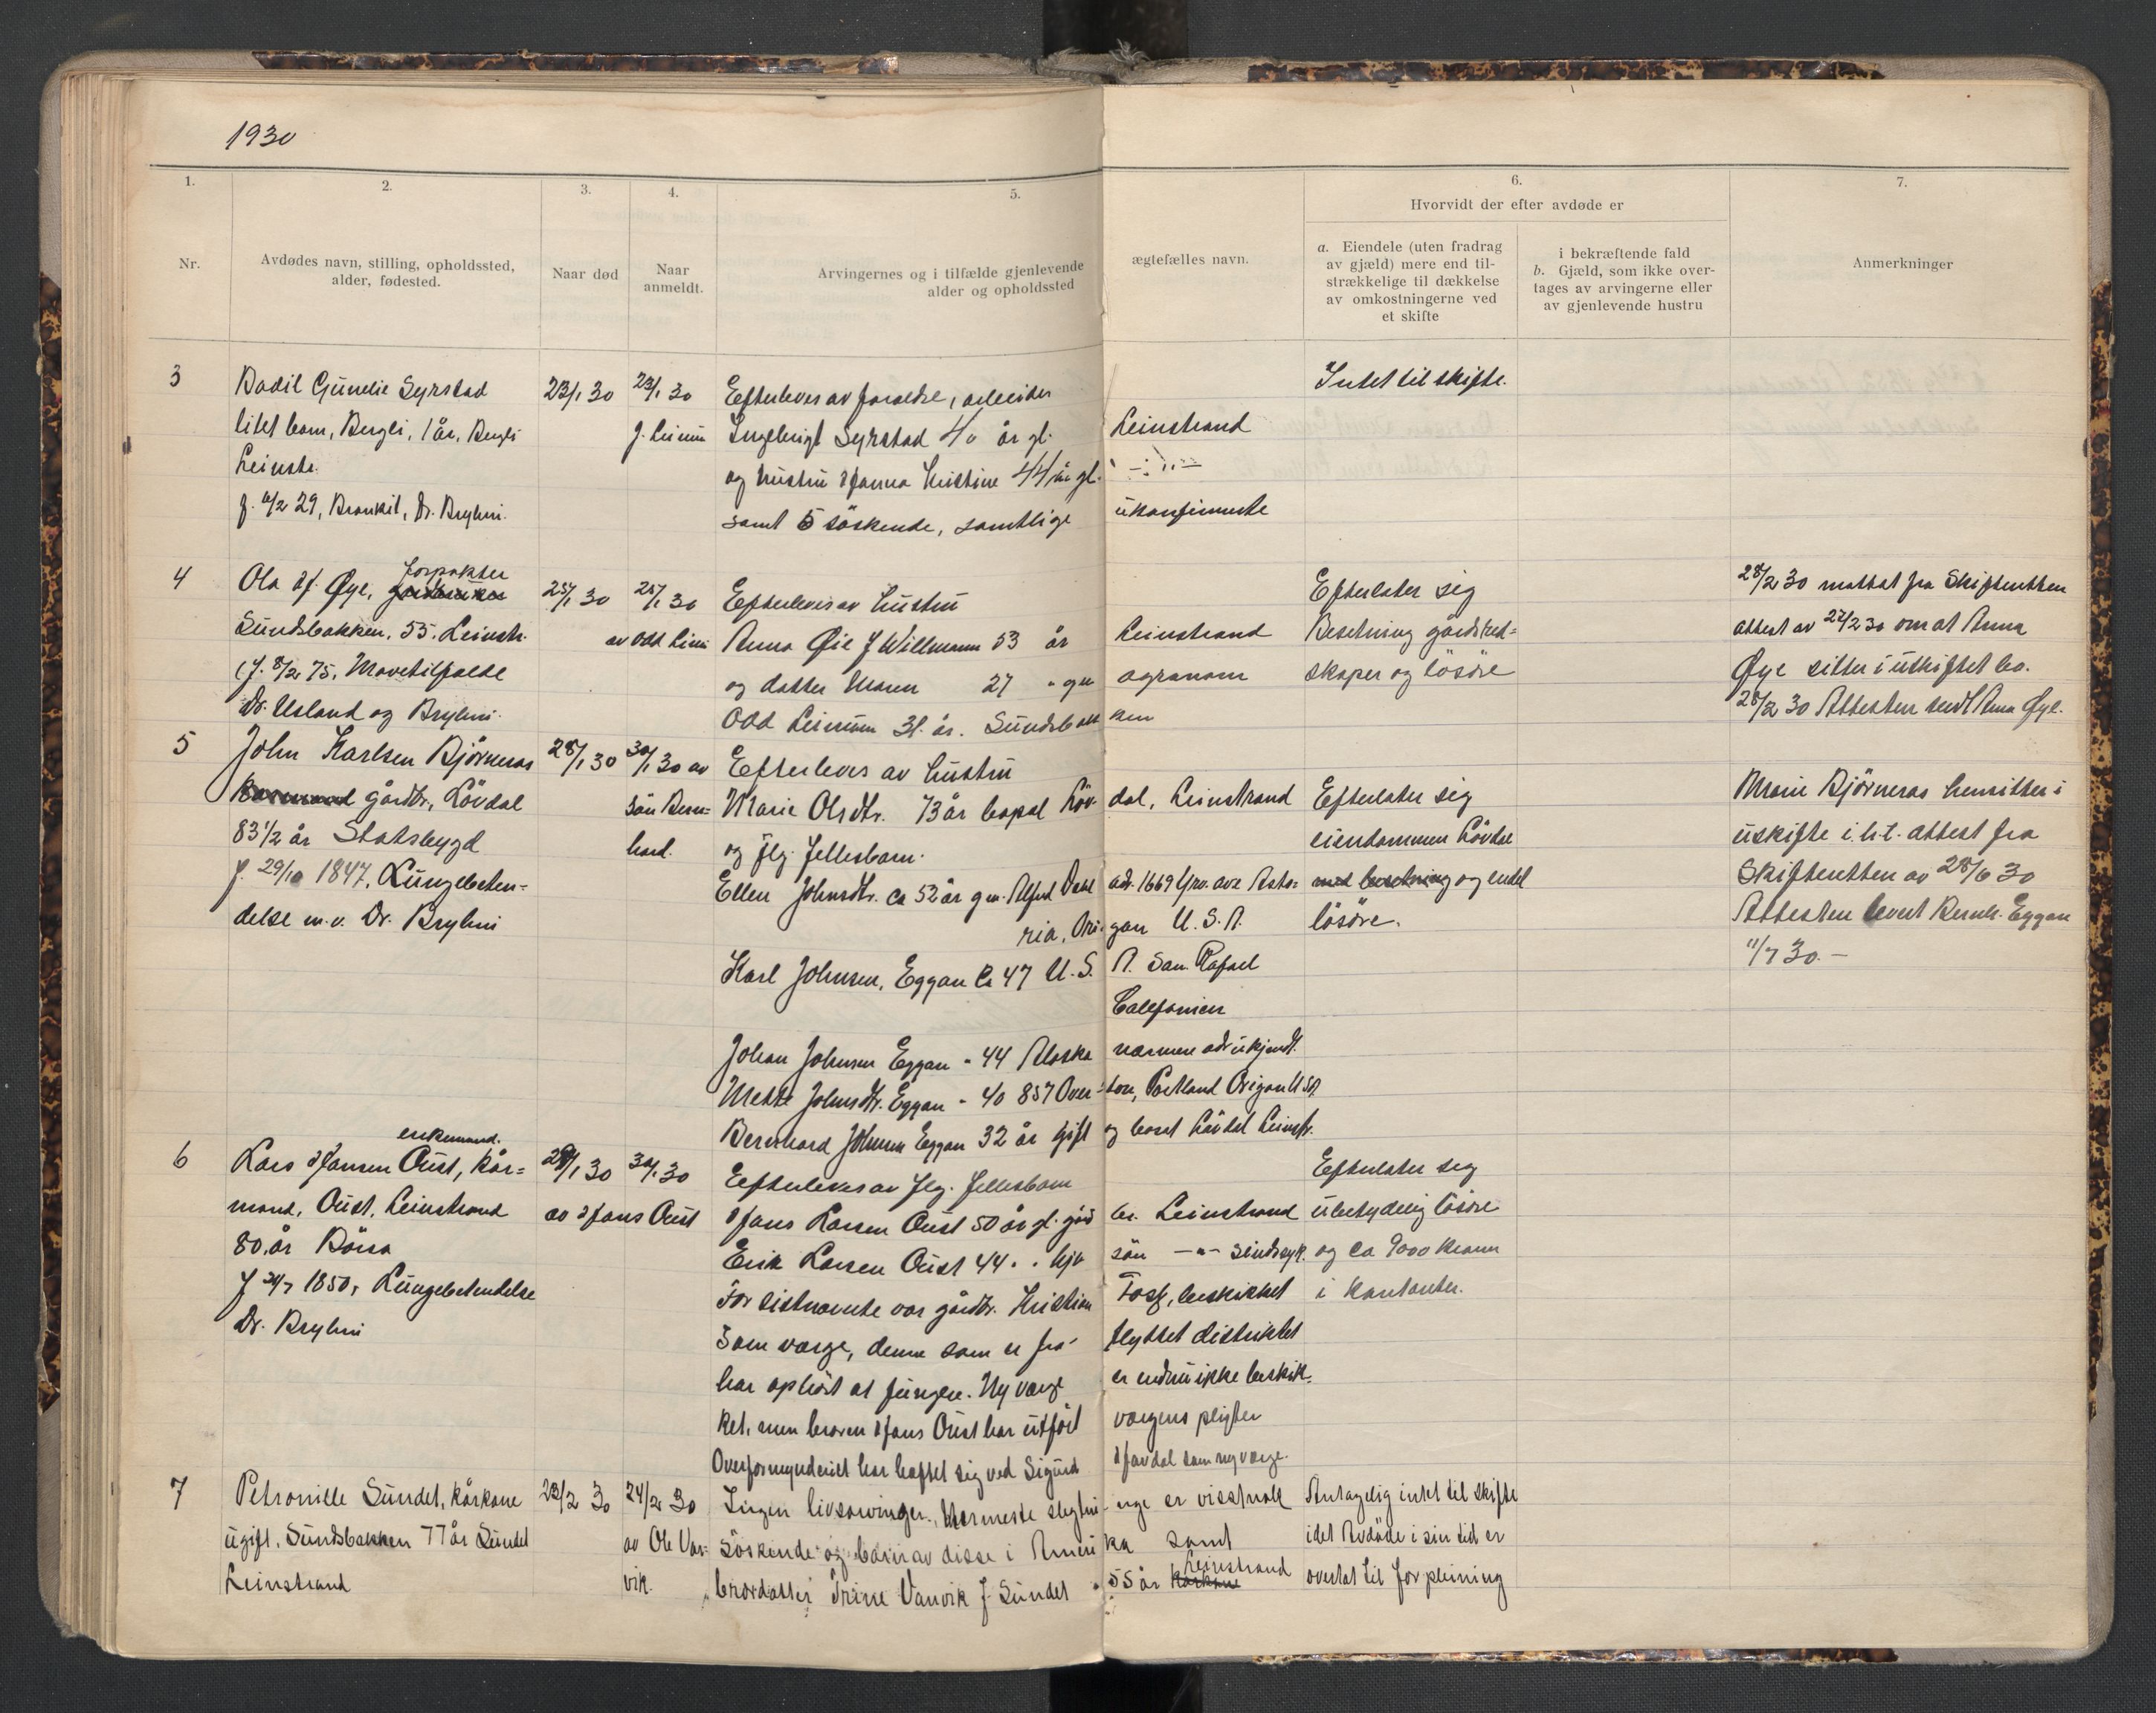 1930
1.
2.
3.
4.
5.
6.
7.
Nr.
Avdødes navn, stilling, opholdssted,
alder, fødested.
Naar død
Naar
anmeldt.
Arvingernes og i tilfælde gjenlevende
alder og opholdssted
ægtefælles navn.
Hvorvidt der efter avdøde er
a. Eiendele (uten fradrag
av gjæld) mere end til-
strækkelige til dækkelse
av omkostningerne ved
et skifte
i bekræftende fald
b. Gjæld, som ikke over-
tages av arvingerne eller
av gjenlevende hustru
Anmerkninger
3
Bodil Gunelie Syrstad
litet barn, Bergli, 1 år, Bergli
Leinstr.
f. 6/2 29, Bronkit, Dr. Bryhni.
23/1 30
23/1 30
J. Leinum
Efterleves av foreldre, arbeider
Ingebrigt Syrstad 40 år gl. Leinstrand
og hustru Hanna Kristine 44 år gl. -:"-
samt 5 söskende, samtlige ukonfirmerte
Intet til skifte.
4
Ola Hf. Øye, forpakter gardbruker
Sundsbakken, 55, Leinstr.
(f. 8/2 75, Mavetilfælde
Dr. Usland og Bryhni.
25/1 30
25/1 30
av Odd Leinum
Efterleves av hustru
Anna Øie f Willmann 53 år Leinstrand
og datter Maren 27 " gm agronom
Odd Leinum 31 år. Sundsbakken
Efterlater sig
Besetning gårdsred=
skaper og lösöre
28/2 30 mottat fra Skifteretten
attest av 27/2 30 om at Anna
Øye sitter i uskiftet bo.
28/2 30 Attesten sendt Anna Øye.
5
John Karlsen Bjørneras
Kårmand gårdbr., Lövdal
83 1/2 år Stadsbygd
f. 29/10 1847, Lungebeten-
delse m.v. Dr. Bryhni
28/1 30
30/1 30 av
sön Bern=
hard.
Efterleves av hustru
Marie Olsdtr. 73 år bopæl Lövdal, Leinstrand
og flg. fellesbarn.
Ellen Johnsdtr. ca 52 år gm. Alfred Dahl adr. 1669 Grv. ave Asto=
ria, Origan U.S.A.
Karl Johnsen, Eggan Ca 47 U.S.A. San Rafael
Califonien
Johan Johnsen Eggan " 44 Alaska nærmere adr. ukjendt.
Mette Johnsdtr. Eggan " 40 857 Overton, Portland Origan U.S.A.
Bernhard Johnsen Eggan 32 år gift og bosat Lövdal Leinstr.
Efterlater sig
eiendommen Lövdal
med besetning og endel
lösöre.
Marie Bjørneras hensitter i
uskifte i.h.t. attest fra
Skifteretten av 28/6 30
Attesten levert Bernh. Eggan
11/7 30.-
6
Lars Hansen Oust, enkemand. kår=
mand, Oust, Leinstrand
80 år Börsa
f 24/7 1850, Lungebetendelse
Dr. Bryhni
29/1 30
30/1 30
av Hans Oust
Efterleves av flg. fellesbarn
Hans Larsen Oust 50 år gl. gårdbr. Leinstrand
Erik Larsen Oust 44 " " hjv sön -"- sindssyk.
For sistnævnte var gårdbr. Kristian Tosh, beskikket
som verge, denne som er fraflyttet distriktet
har ophört at fungere. Ny verge er endnu ikke beskik-
ket, men broren Hans Oust har utfört vergens pligter
Overformynderiet har heftet sig ved Sigurd Havdal som ny verge.
Efterlater sig
ubetydelig lösöre
og ca 9000 kroner
i kontanter.
7
Petronille Sundet, kårkone
ugift, Sundsbakken 77 år Sundet
Leinstrand
23/2 30
24/2 30
av Ole Van=
vik.
Ingen livsarvinger. Nærmeste slegtninge er visstnok
söskende og barn av disse i Amerika samt
brordatter Trine Vanvik f. Sundet 55 år Leinstrand
Antagelig intet til skifte
idet Avdöde i sin tid er
overlat til forpleining